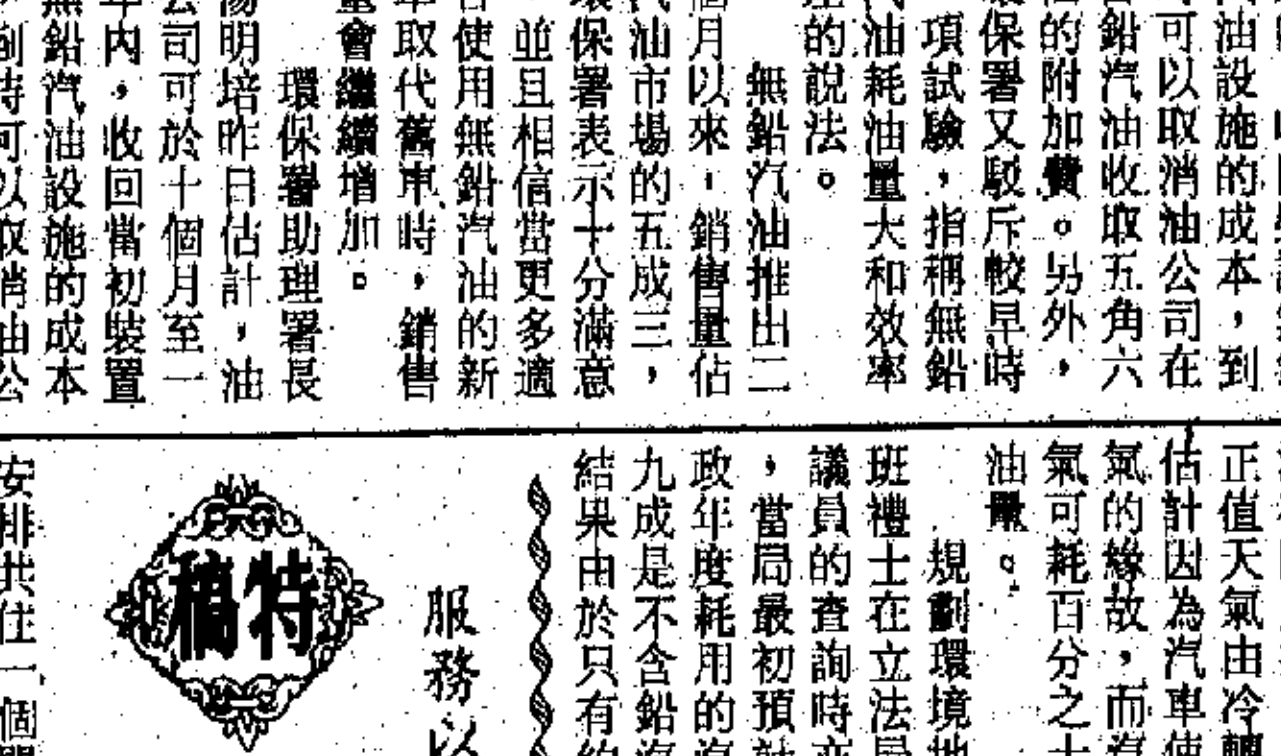 油設施的成本，到
可以取消油公司在
鉛汽油收取五角六
的附加費。另外，
保署又駁斥較早時
項試驗，指稱無鉛
油耗油量大和效率
的說法。
無鉛汽油推出二
個月以來，銷售量佔
汽油市場的五成三，
環保署表示十分滿意
，並且相信當更多適
使用無鉛汽油的新
取代舊車時，銷售
量會繼續增加。
環保署助理署長
湯明培昨日估計，油
公司可於十個月至一
年內，收回當初裝置
無鉛汽油設施的成本
，到時可以取消油公
正值天氣由冷轉
估計因為汽車使
氣的緣故，而汽
氣可耗百分之十
油量。
規劃環境地
班禮士在立法局
議員的查詢時
，當局最初預計
政年度耗用的汽
九成是不含鉛汽
結果由於只有約
服務以
特稿
安排共住一個單